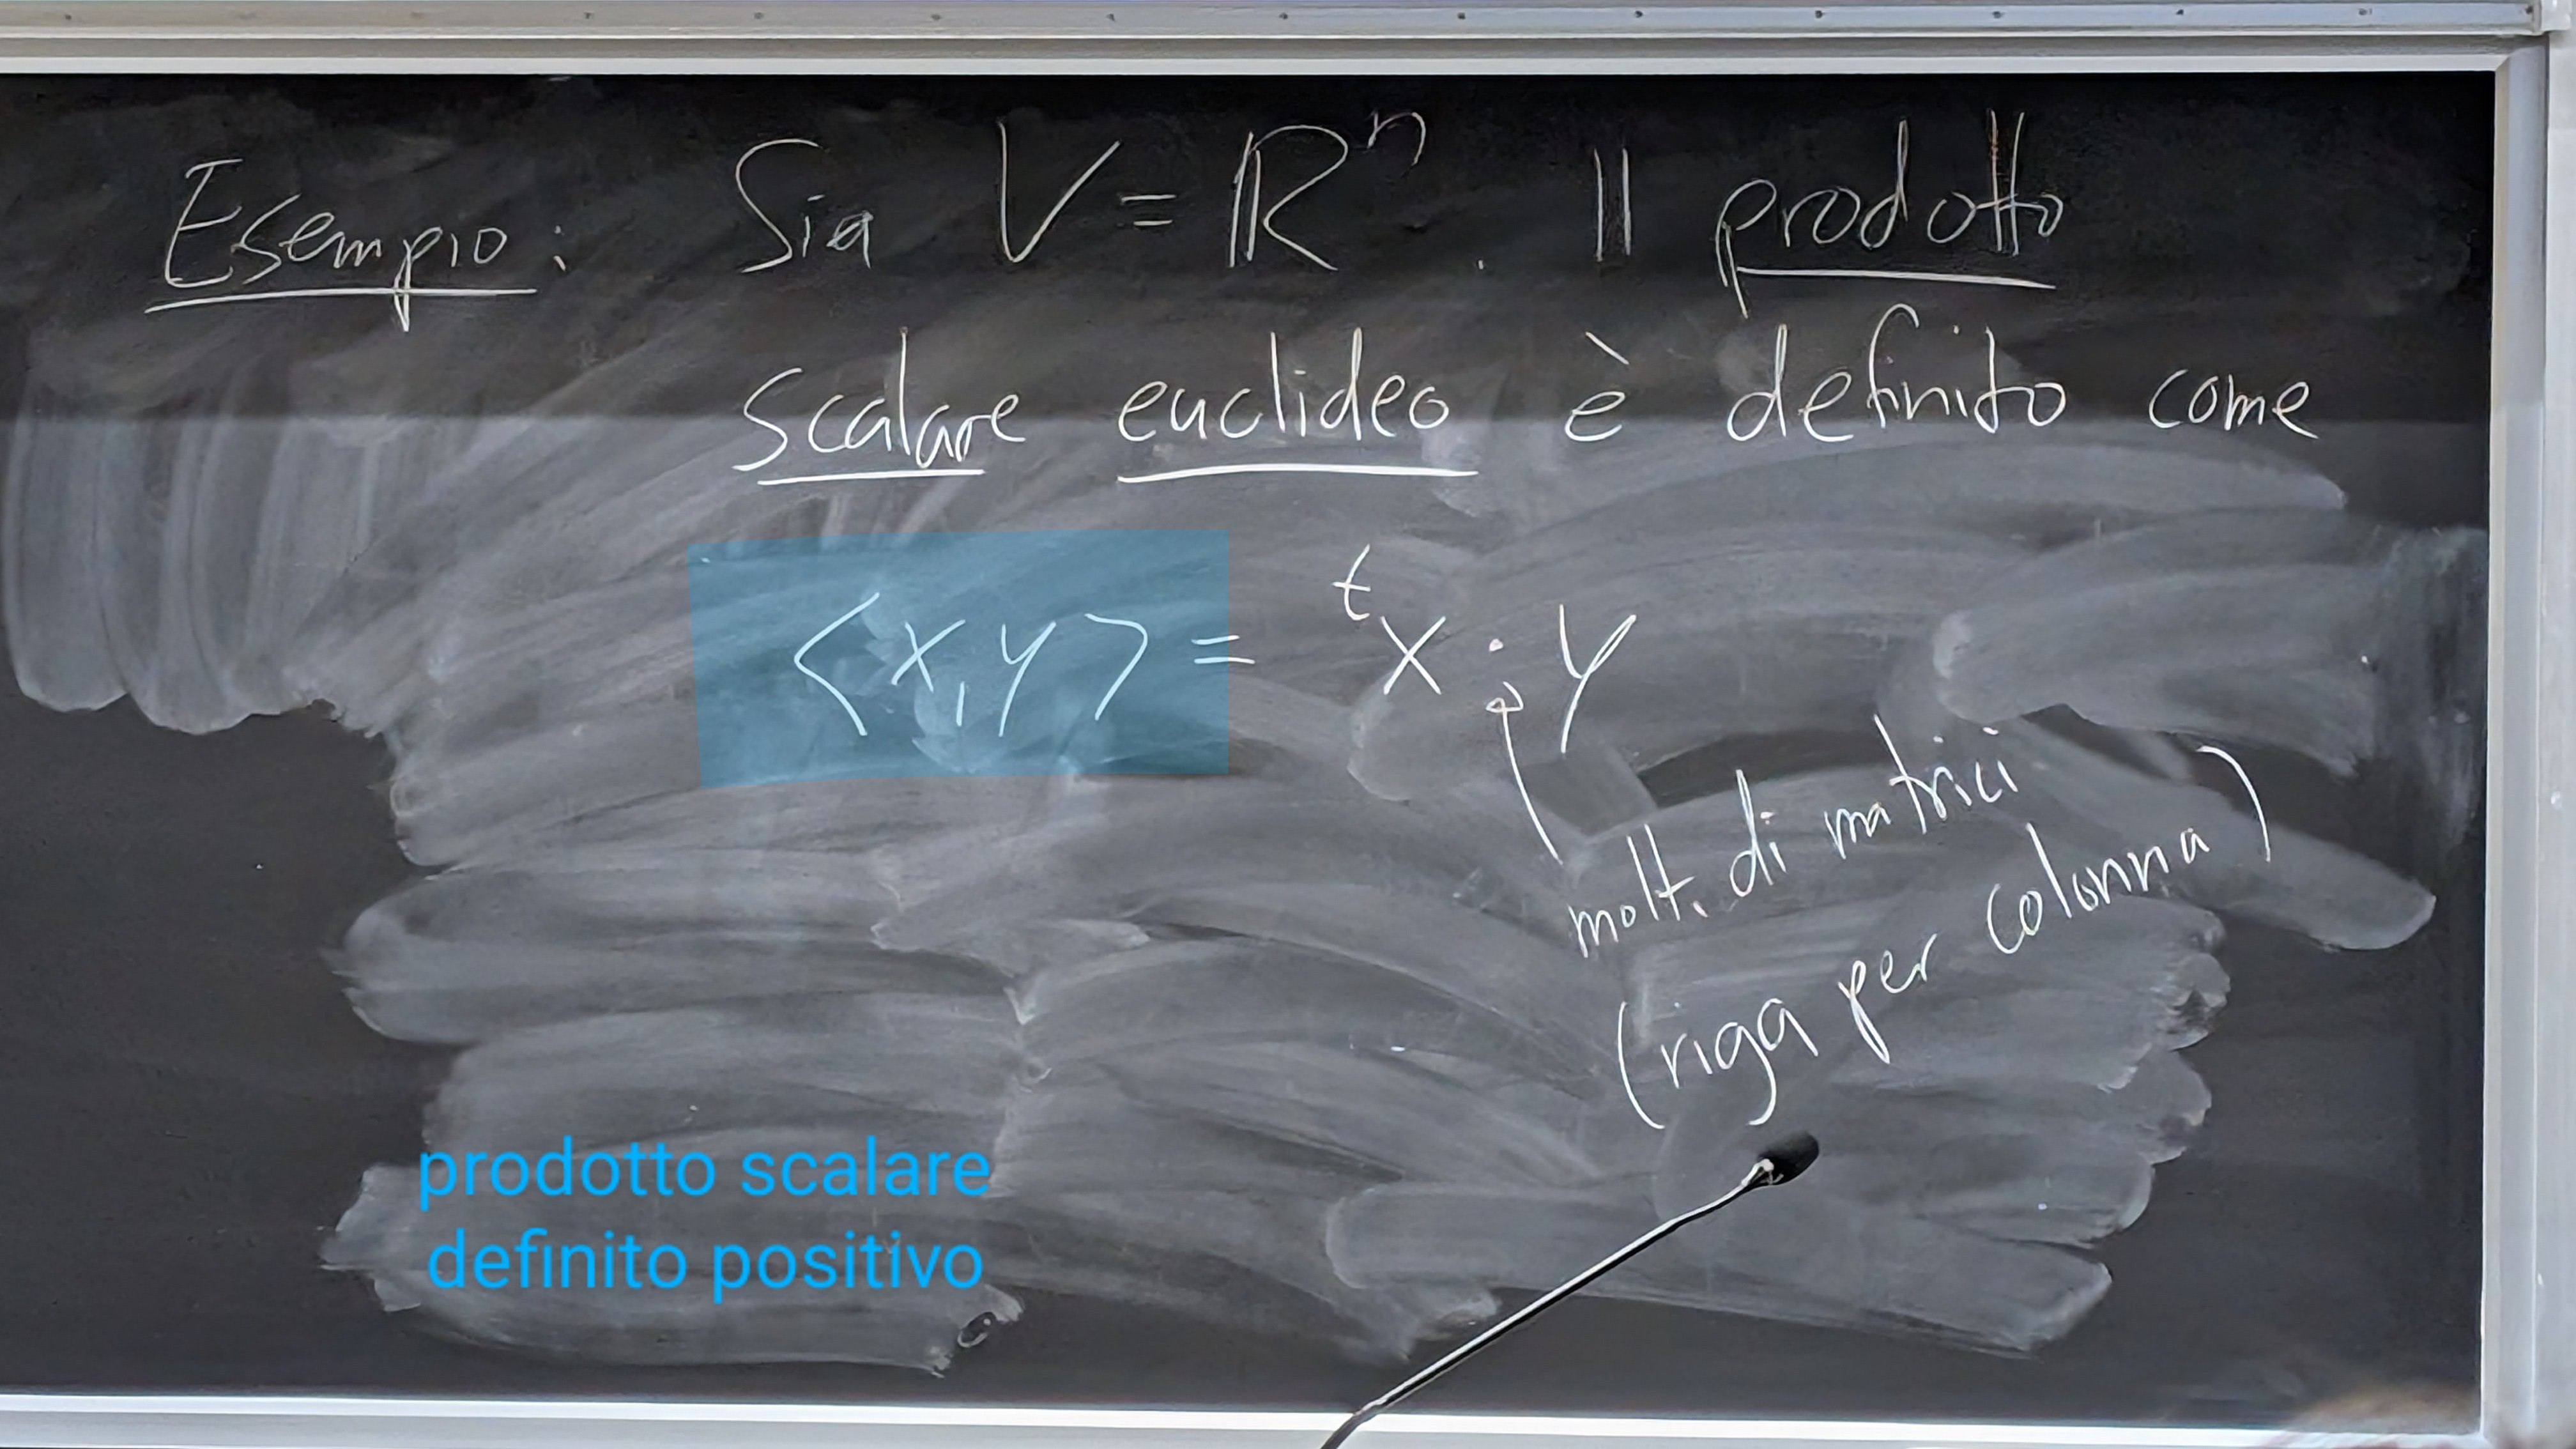 Esempio: Sia V = ℝⁿ. Il prodotto
scalare euclideo è definito come
<x,y> = ᵗx · y
molt. di matrici
(riga per colonna)
prodotto scalare
definito positivo